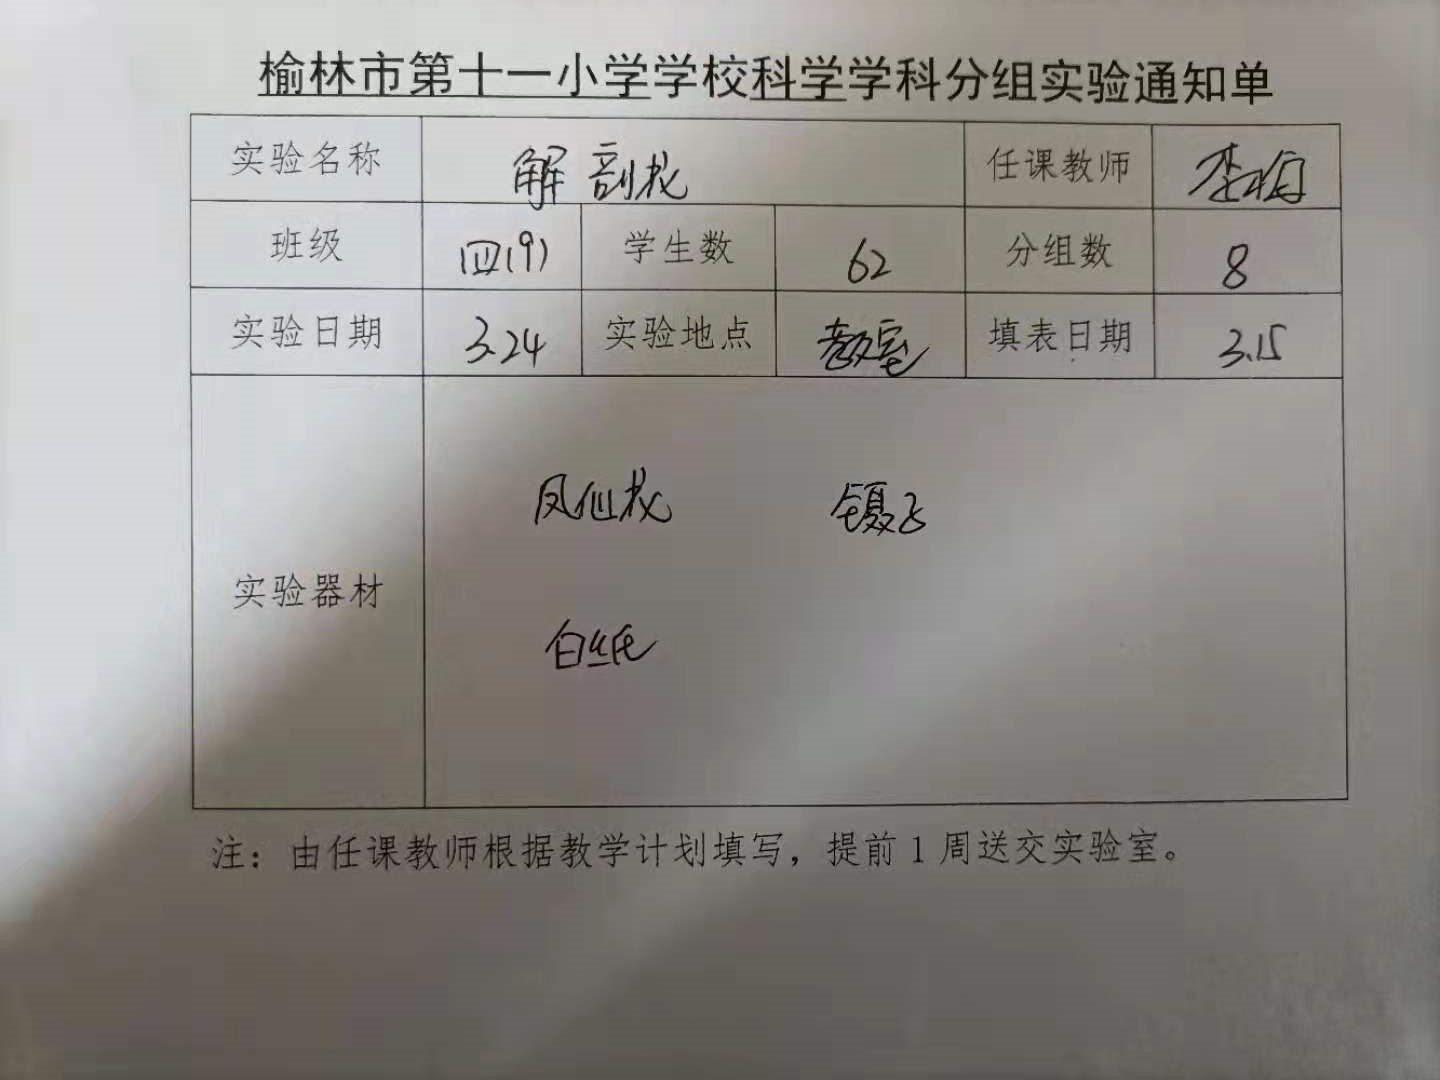 榆林市第十一小学学校科学学科分组实验通知单
实验名称 解剖花 任课教师 李梅
班级 四(9) 学生数 62 分组数 8
实验日期 3.24 实验地点 教室 填表日期 3.15
凤仙花 镊子
实验器材
白纸
注：由任课教师根据教学计划填写，提前1周送交实验室。